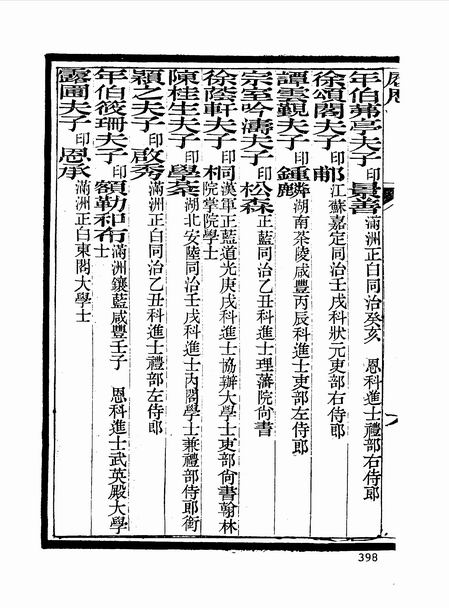 年伯茀亭夫子印景善滿洲正白同治癸亥 恩科進士禮部右侍郎
徐頌閣夫子印郙江蘇嘉定同治壬戌科狀元吏部右侍郎
譚雲覲夫子印鍾麟湖南茶陵咸豐丙辰科進士吏部左侍郎
宗室吟濤夫子印松森正藍同治乙丑科進士理藩院尙書
徐蔭軒夫子印桐漢軍正藍道光庚戌科進士協辦大學士吏部尙書翰林
院掌院學士
陳桂生夫子印學棻湖北安陸同治壬戌科進士內閣學士兼禮部侍郎銜
穎之夫子印啟秀滿洲正白同治乙丑科進士禮部左侍郎
年伯筱珊夫子印額勒和布滿洲鑲藍咸豐壬子 恩科進士武英殿大學
士
露圃夫子印恩承滿洲正白東閣大學士
398